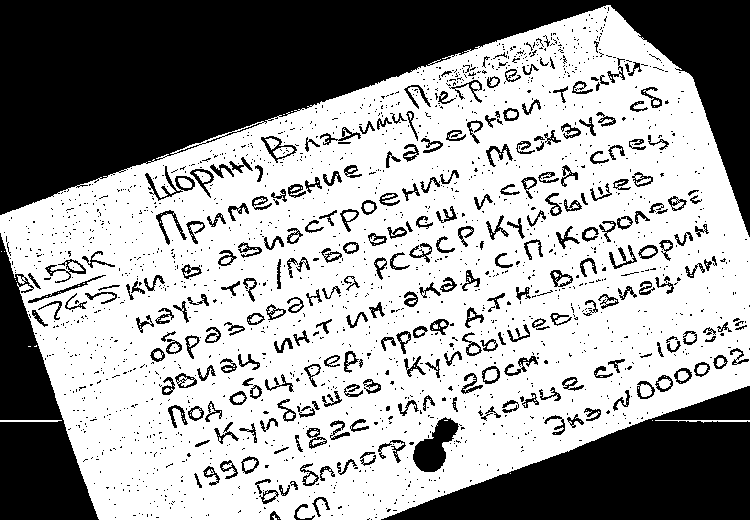 Шорин, Владимир Петрович
Применение лазерной техни
ки в авиастроении: Межвуз. сб.
науч. тр. /М-во высш. и сред. спец.
образования РСФСР, Куйбышев.
авиац. ин-т им. акад. С.П. Королева
Под общ. ред. проф. д.т.н. В.П. Шорин
.-Куйбышев: Куйбышев. авиац. ин-
1990. -182с. : ил.; 20см.
Библиогр. конце ст. -100экз
Экз. N000002
91-50К
1745